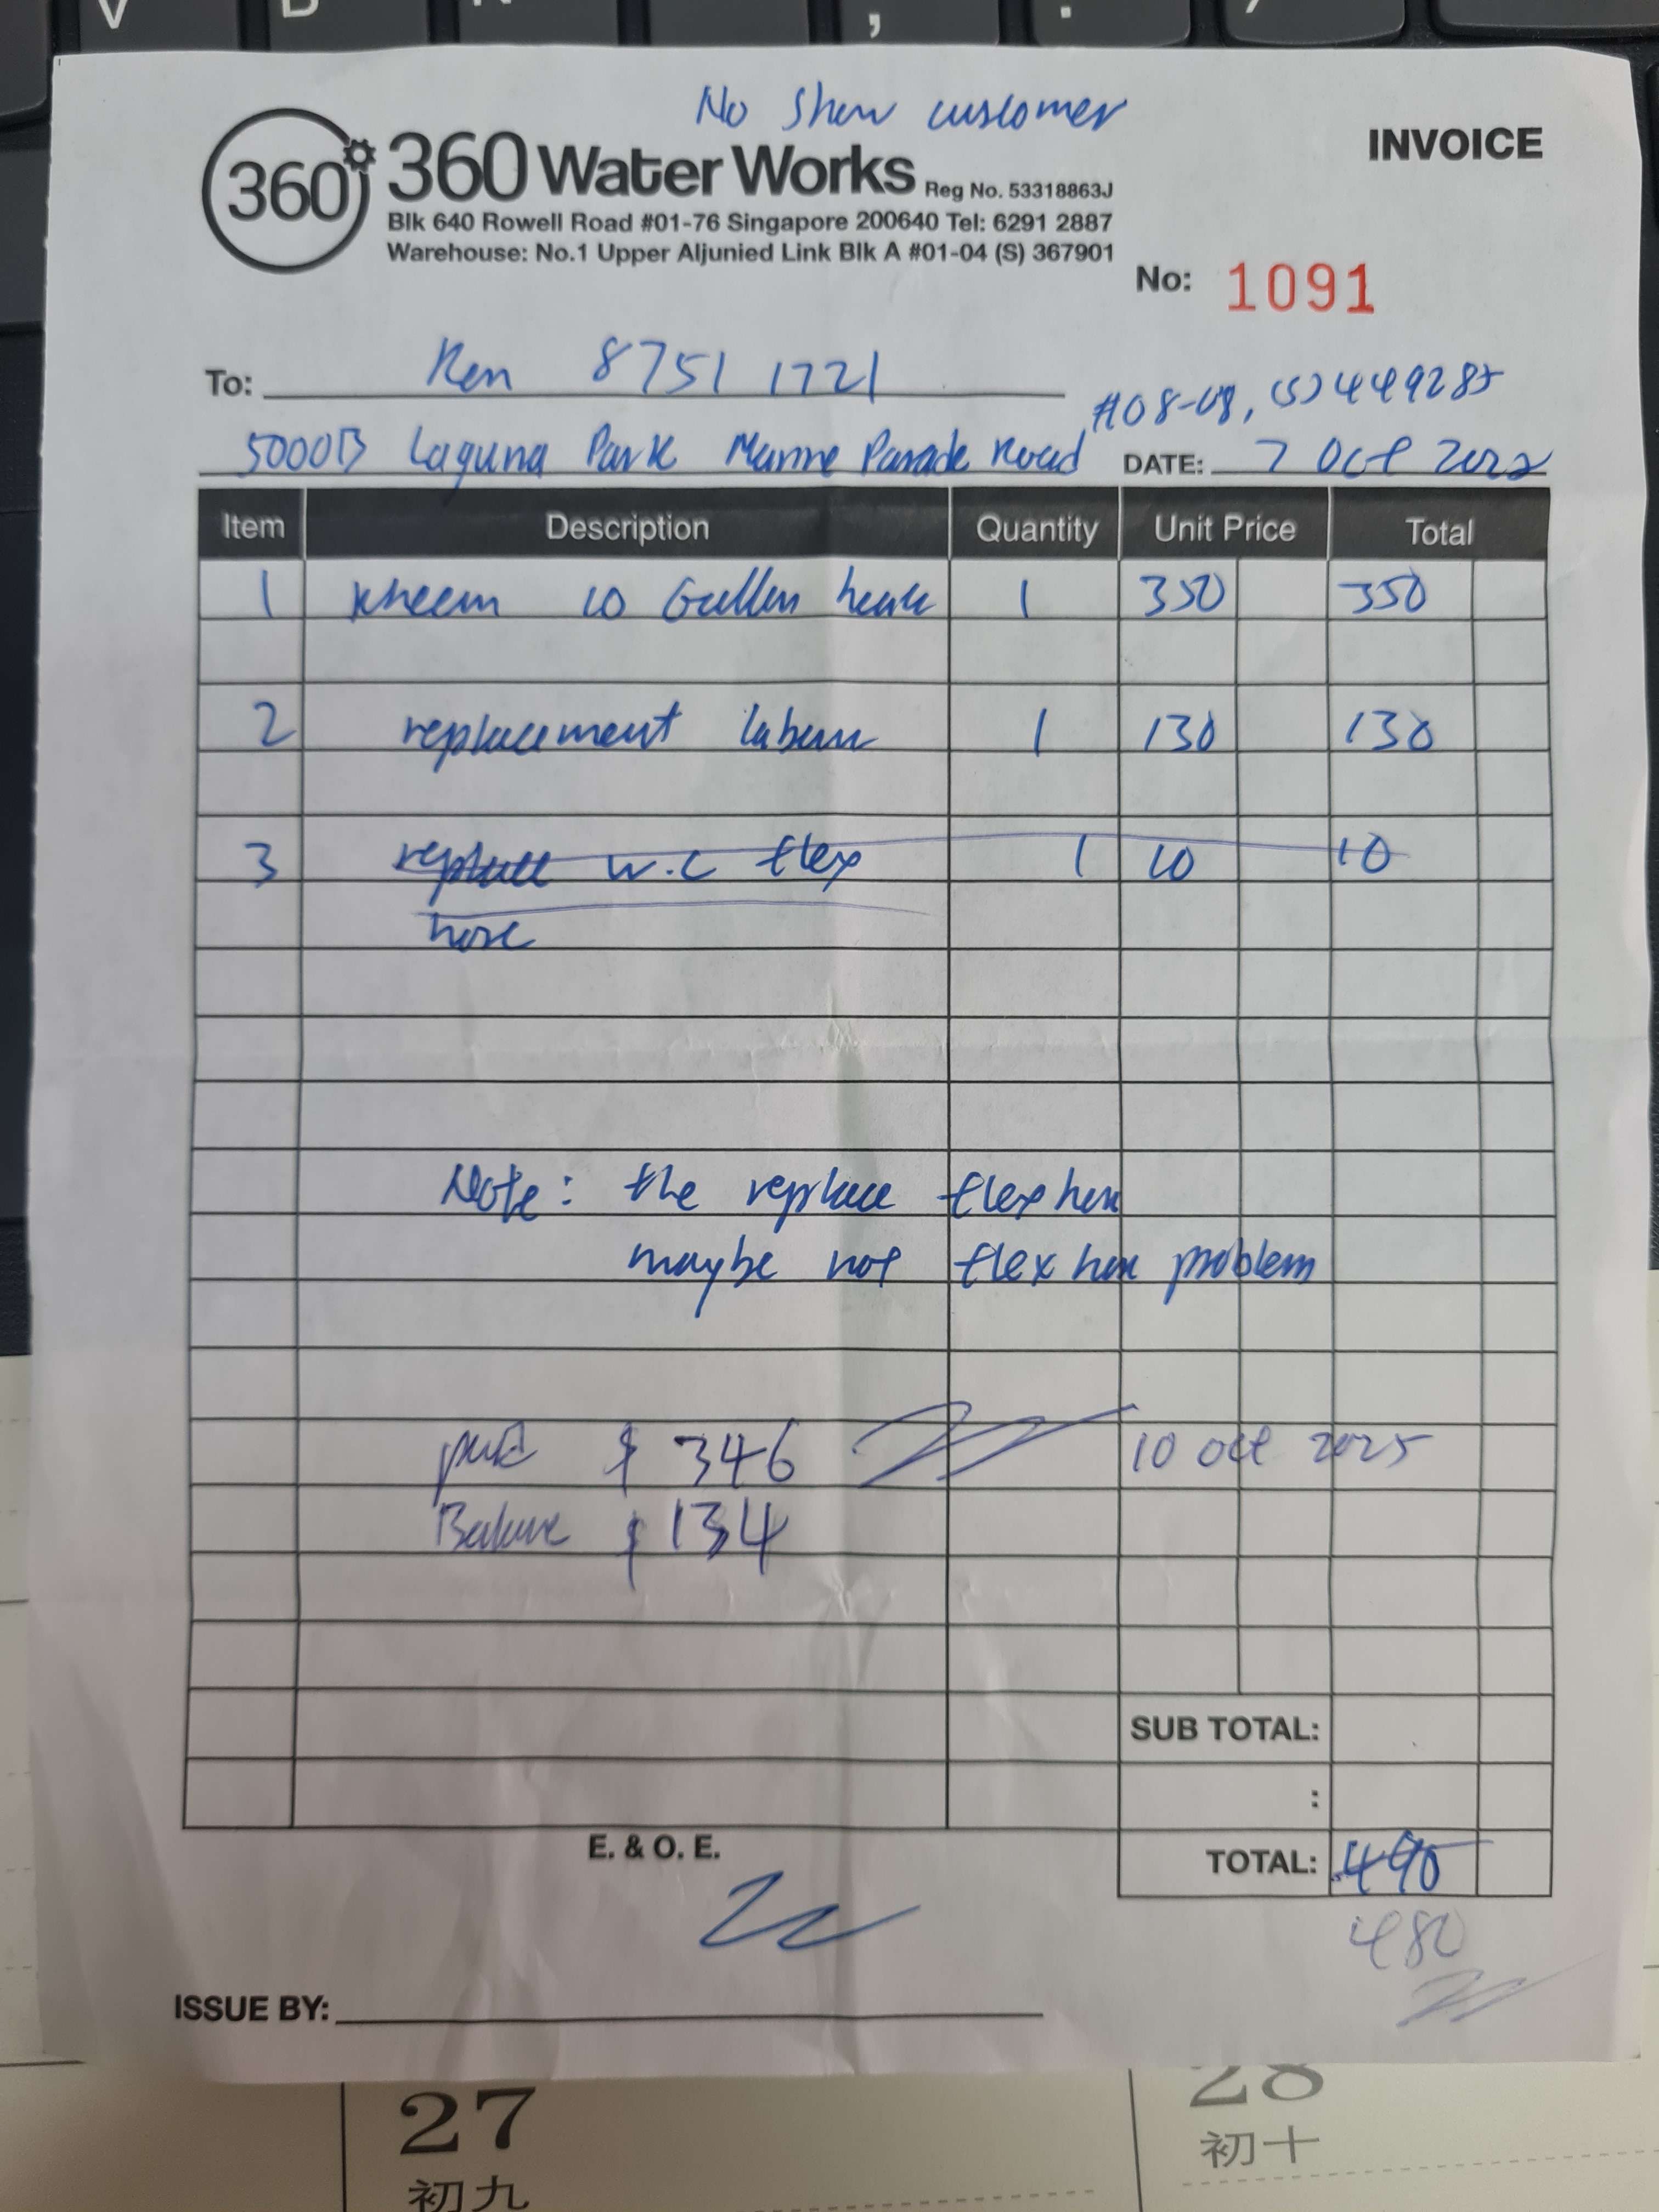 No Show customer
360 360 Water Works Reg No. 53318863J
INVOICE
Blk 640 Rowell Road #01-76 Singapore 200640 Tel: 6291 2887
Warehouse: No.1 Upper Aljunied Link Blk A #01-04 (S) 367901
No: 1091
To: Ken 8751 1721
#08-08, (S) 449285
5000B Laguna Park Marine Parade Road DATE: 7 Oct
Item Description Quantity Unit Price Total
1 Rheem 10 Gallen 1 350 350
2 replacement labour 1 130 130
3 replace w.c flex 1 10 10
hose
Note: the replace flex hose
maybe not flex hose problem
paid $ 346 10 Oct 2025
Balance $ 134
SUB TOTAL:
:
E. & O. E.
TOTAL: 490
480
ISSUE BY:
27 28
初九 初十
V B , .